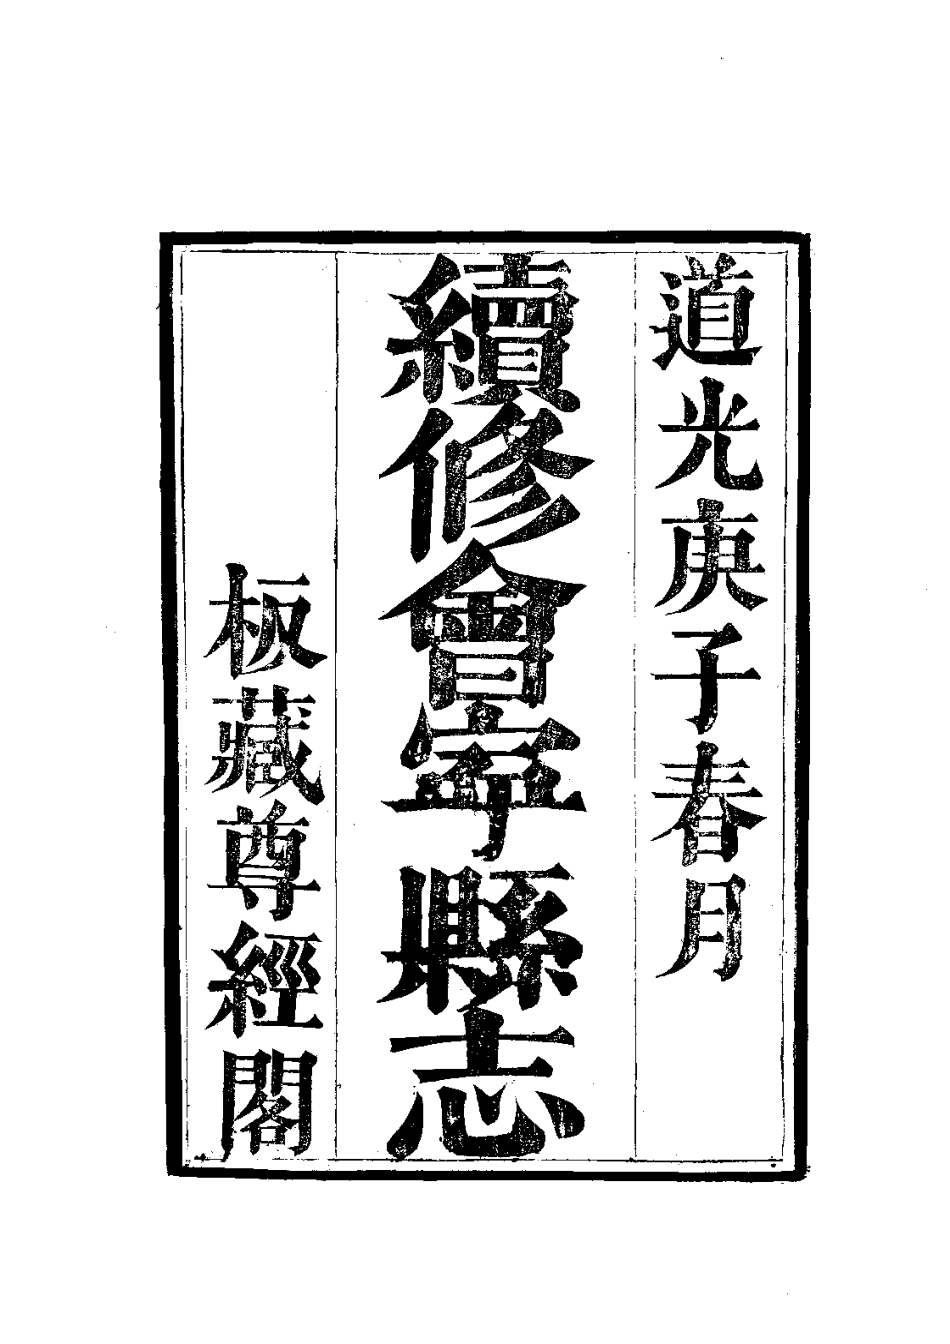 道光庚子春月
續修會寧縣志
板藏尊經閣